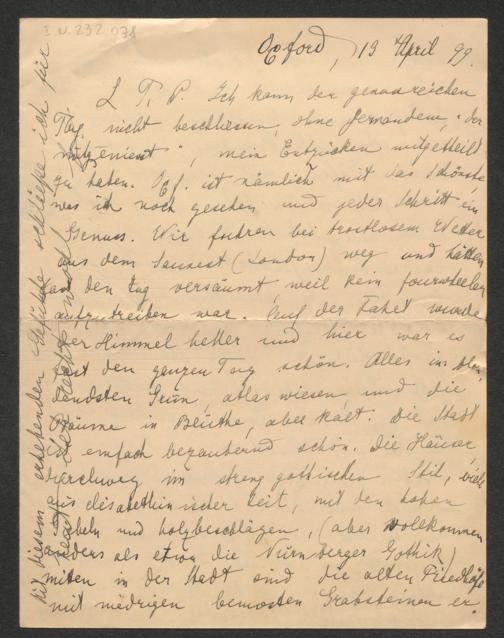 I.N. 232 078
Oxford, 13 April 99.
L. T. P. Ich kann den genussreichen
Tag nicht beschliessen, ohne Jemandem, "der
mitgeniesst", mein Entzücken mitgetheilt
zu haben. Oxf. ist nämlich mit das Schönste,
was ich noch gesehen und jeder Schritt ein
Genuss. Wir fuhren bei trostlosem Wetter
aus dem (London) weg und hätten
den Zug versäumt, weil kein fourwheeler
aufzutreiben war. Auf der Fahrt wurde
der Himmel heller und hier war es
fast den ganzen Tag schön. Alles im
Grün, atlas wiesen, und die
Bäume in Blüthe, aber kalt. Die Stadt
ist einfach bezaubernd schön. Die Häuser,
durchweg im streng gothischen Stil, viele
aus elisabethinischer Zeit, mit den hohen
Giebeln und holzbeschlägen, (aber vollkommen
anders als etwa die Nürnberger Gothik)
mitten in der Stadt sind die alten Friedhöfe
mit niedrigen bemoosten Grabsteinen er
Mit diesem erhebenden Gefühle schliesse ich für
heute. Lebe recht wohl